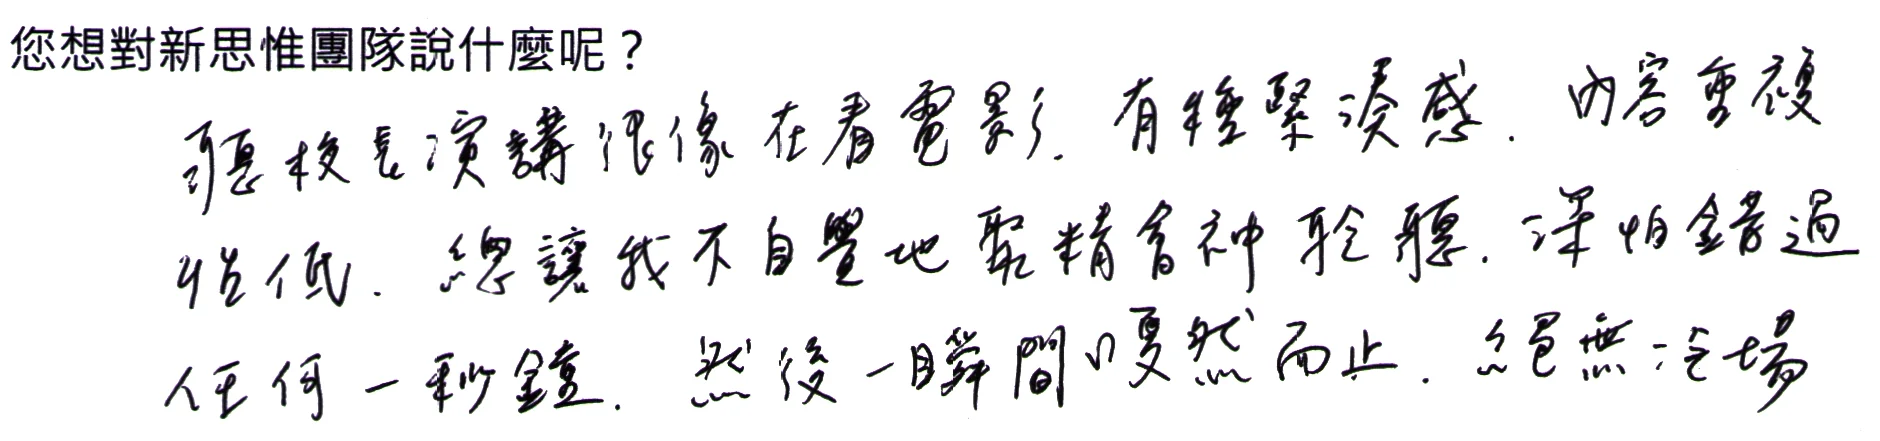 您想對新思惟團隊說什麼呢？
聽校長演講很像在看電影. 有種緊湊感. 內容重複
性低. 總讓我不自覺地聚精會神聆聽. 深怕錯過
任何一秒鐘. 然後一瞬間嘎然而止. 絕無冷場